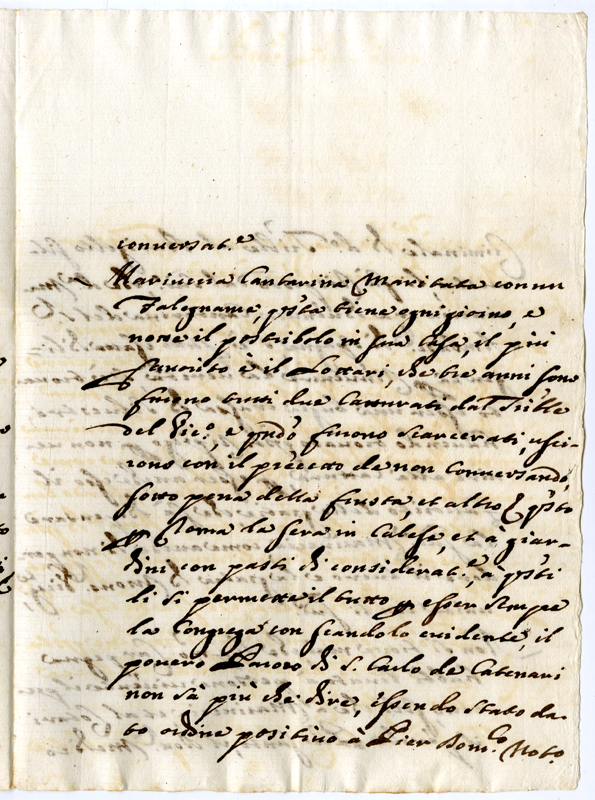 conversat.e
Mariuccia Cantarina Maritata con un
Falegname, q̃sta tiene ogni giorno, e
notte il postribolo in sua Casa, il più
favorito è il Lottari, che tre anni sono
furono tutti due Catturati dal Trible
del Vic.o, e qndo furono scarcerati, usci-
rono con il precetto de non Conversando,
sotto pena della frusta, et altro q̃sto
p Roma la sera in Calesse, et à giar-
dini con pasti di considerat.e, a q̃sti
li si permette il tutto p esser sempre
la Congrega con scandolo evidente, il
povero Paroco di S. Carlo de Catenari
non sà più che dire, essendo stato da-
to ordine positivo à Pier Dom.co Noto.